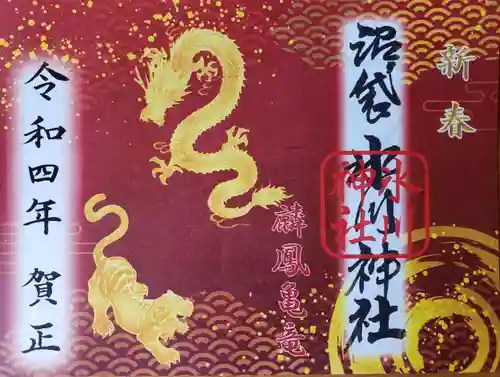 新春
沼袋 氷川神社
氷川
神社
麟鳳亀竜
令和四年 賀正